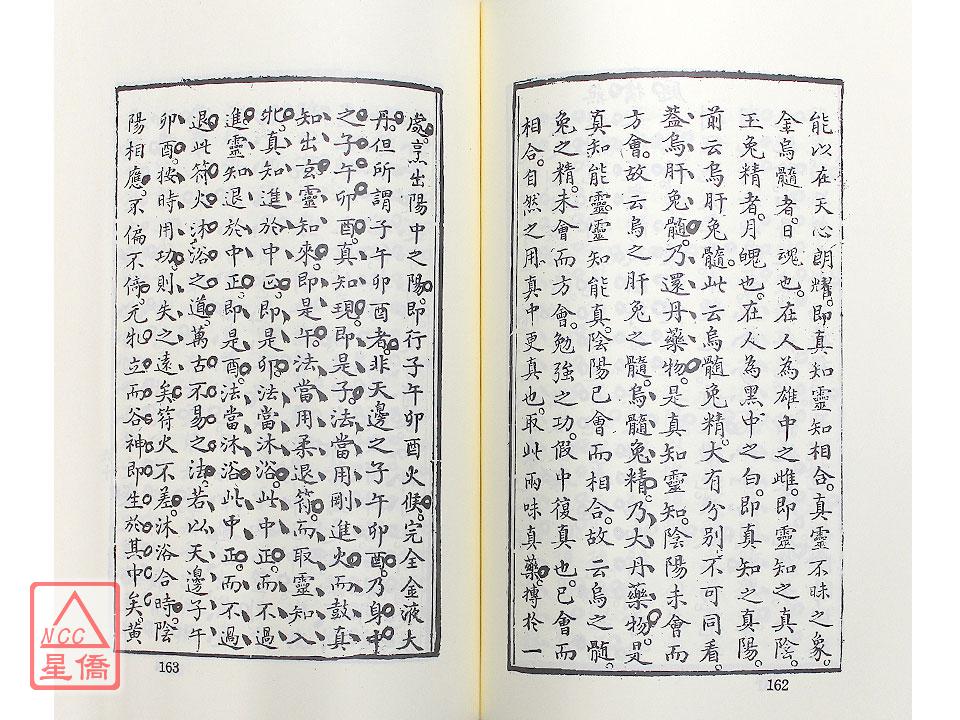 能以在天心朗耀。即真知靈知相合。真靈不昧之象。
金烏髓者。日魂也。在人為雄中之雌。即靈知之真陰。
玉兔精者。月魄也。在人為黑中之白。即真知之真陽。
前云烏肝兔髓。此云烏髓兔精。大有分別。不可同看。
蓋烏肝兔髓。乃還丹藥物。是真知靈知。陰陽未會而
方會。故云烏之肝兔之髓。烏髓兔精。乃大丹藥物。是
真知能靈。靈知能真。陰陽已會而相合。故云烏之髓。
兔之精。未會而方會。勉強之功。假中復真也。已會而
相合。自然之用。真中更真也。取此兩味真藥。摶於一
處。烹出陽中之陽。即行子午卯酉火候。完全金液大
丹。但所謂子午卯酉者。非天邊之子午卯酉。乃身中
之子午卯酉。真知現。即是子。法當用剛進火。而鼓真
知出玄。靈知來。即是午。法當用柔退符。而取靈知入
牝。真知進於中正。即是卯。法當沐浴。此中正。而不過
進。靈知退於中正。即是酉。法當沐浴。此中正。而不過
退。此符火沐浴之道。萬古不易之法。若以天邊子午
卯酉。按時用功。則失之遠矣。符火不差。沐浴合時。陰
陽相應。不偏不倚。元牝立而谷神即生於其中矣。黃
163
162
NCC
星僑